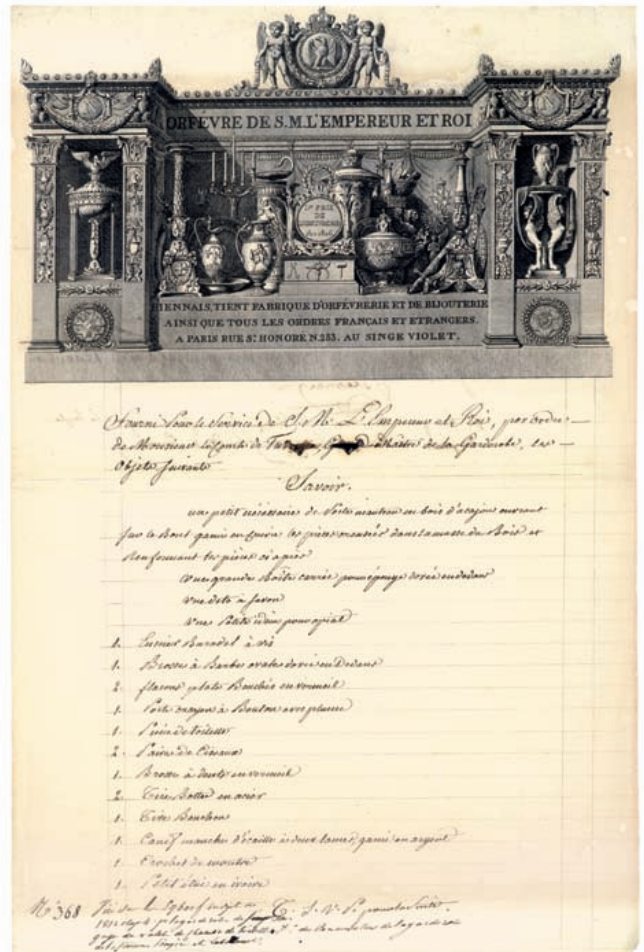 ORFEVRE DE S.M. L'EMPEREUR ET ROI
1er PRIX
DE
BIENNAIS, TIENT FABRIQUE D'ORFEVRERIE ET DE BIJOUTERIE
AINSI QUE TOUS LES ORDRES FRANÇAIS ET ETRANGERS.
A PARIS RUE St. HONORE N.283. AU SINGE VIOLET.
Fourni pour le Service de S. M. L'Empereur et Roi, par ordre
de Monsieur le Comte de Grand Maître de la Garderobe, les
Objets suivants
Savoir.
un petit nécessaire de Porte manteau en bois d'acajou ouvrant
sur le Bout garni en cuivre les pièces montées dans la masse du Bois et
Renfermant les pièces ci après
une grande Boîte carrée pour éponge dorée en dedans
une dito à savon
une Petite idem pour opiat
1. à vis
1. Brosse à Barbe ovale dorée en Dedans
2. flacons plats Bouchés en vermeil
1. Porte crayon à Bouton avec plume
1. Pince de toilette
2. Paires de Ciseaux
1. Brosse à dents en vermeil
2. Tire Botte en acier
1. Tire Bouchon
1. Canif manche d'écaille à deux lames, garni en argent
1. Crochet de montre
1. Petit étui en ivoire
No. 368 T. S. V. P. pour la Suite.